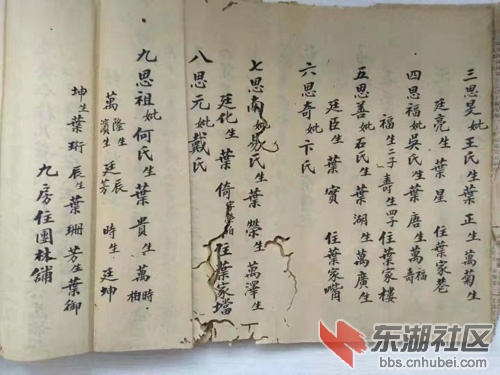 三思旻妣王氏生葉正生萬菊生
廷亮生葉星住葉家巷
四思福妣吳氏生葉唐生萬福壽
福生二子壽生四子住葉家樓
五思善妣石氏生葉湖生萬廣生
廷臣生葉實住葉家嘴
六思奇妣卞氏
七思南妣易氏生葉榮生萬澤生
廷化生葉倚住葉家壋
八思元妣戴氏
九思祖妣何氏生葉貴生萬時相
萬隆生廷辰時生廷坤
濱生廷芳
坤生葉珩辰生葉珊芳生葉御
九房住團林舖
东湖社区
bbs.cnhubei.com